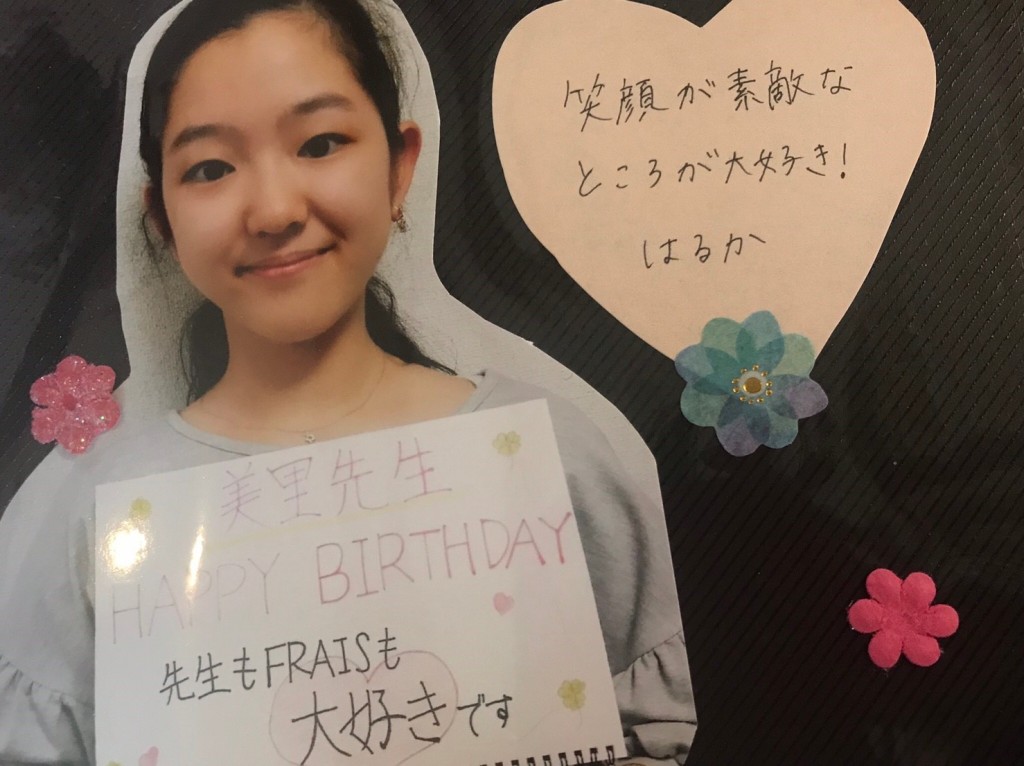 笑顔が素敵な
ところが大好き!
はるか
美里先生
HAPPY BIRTHDAY
先生もFRAISも
大好きです